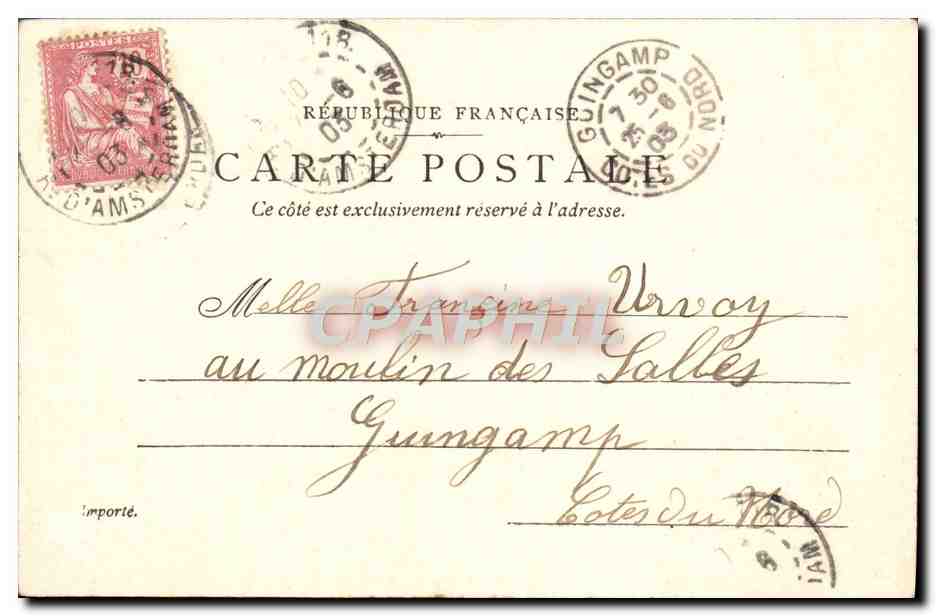 POSTES
R. D'AMSTERDAM
03
118
6
03
AMSTERDAM
GUINGAMP
7 30
25 6
03
CÔTES DU NORD
RÉPUBLIQUE FRANÇAISE
CARTE POSTALE
Ce côté est exclusivement réservé à l'adresse.
Melle Francine Urvoy
CPAPHIL
au moulin des Salles
Guingamp
Importé.
Cotes du Nord